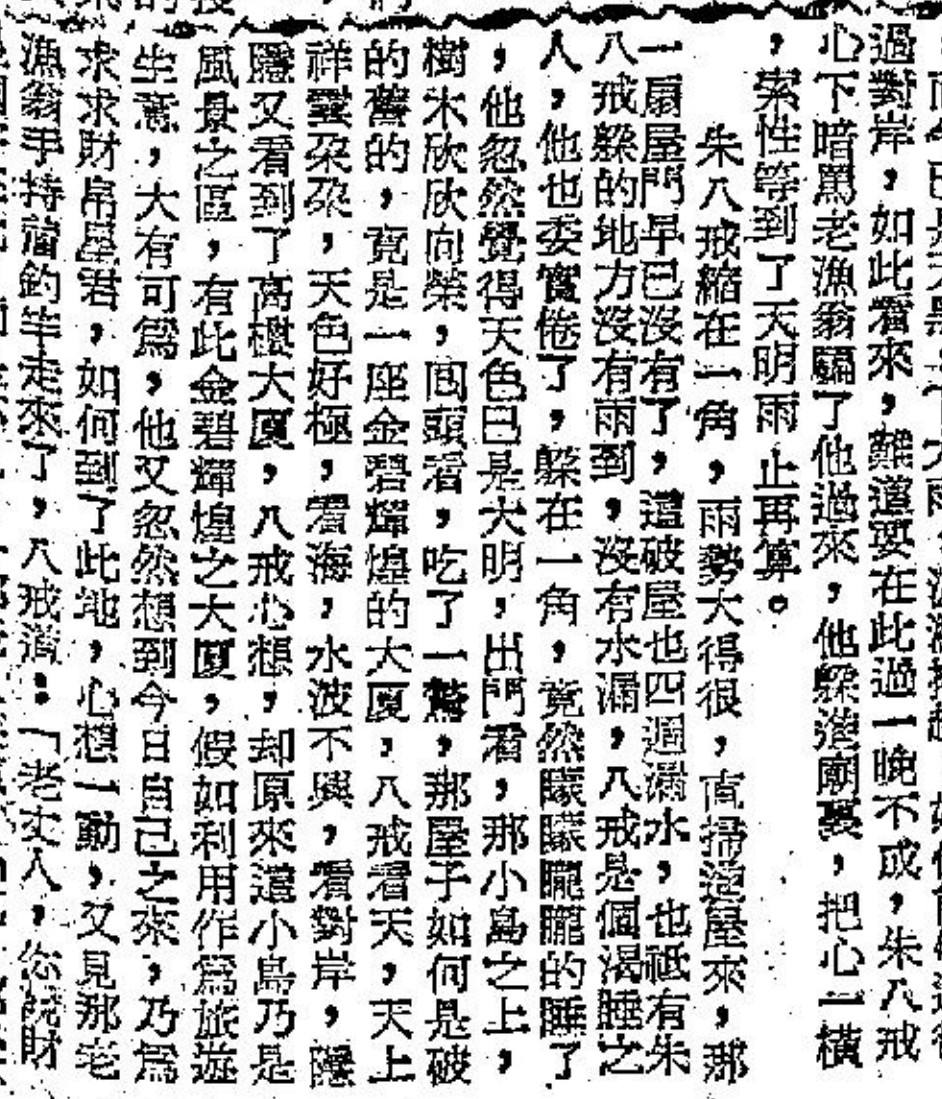 過對岸,如此看來,難道要在此過一晚不成,朱八戒
心下暗罵老漁翁騙了他過來,他躲進廟裏,把心一橫
,索性等到了天明雨止再算。
朱八戒縮在一角,雨勢大得很,直掃進屋來,那
一扇屋門早已沒有了,這破屋也四週漏水,也祗有朱
八戒躲的地方沒有雨到,沒有水漏,八戒是個渴睡之
人,他也委實倦了,躲在一角,竟然矇矇朧朧的睡了
,他忽然覺得天色已是大明,出門看,那小島之上,
樹木欣欣向榮,回頭看,吃了一驚,那屋子如何是破
的舊的,竟是一座金碧輝煌的大厦,八戒看天,天上
祥雲朶朶,天色好極,看海,水波不興,看對岸,隱
隱又看到了高樓大厦,八戒心想,却原來這小島乃是
風景之區,有此金碧輝煌之大厦,假如利用作爲旅遊
生意,大有可爲,他又忽然想到今日自己之來,乃爲
求求財帛星君,如何到了此地,心想一動,又見那老
漁翁手持釣竿走來了,八戒道:「老丈人,您說財